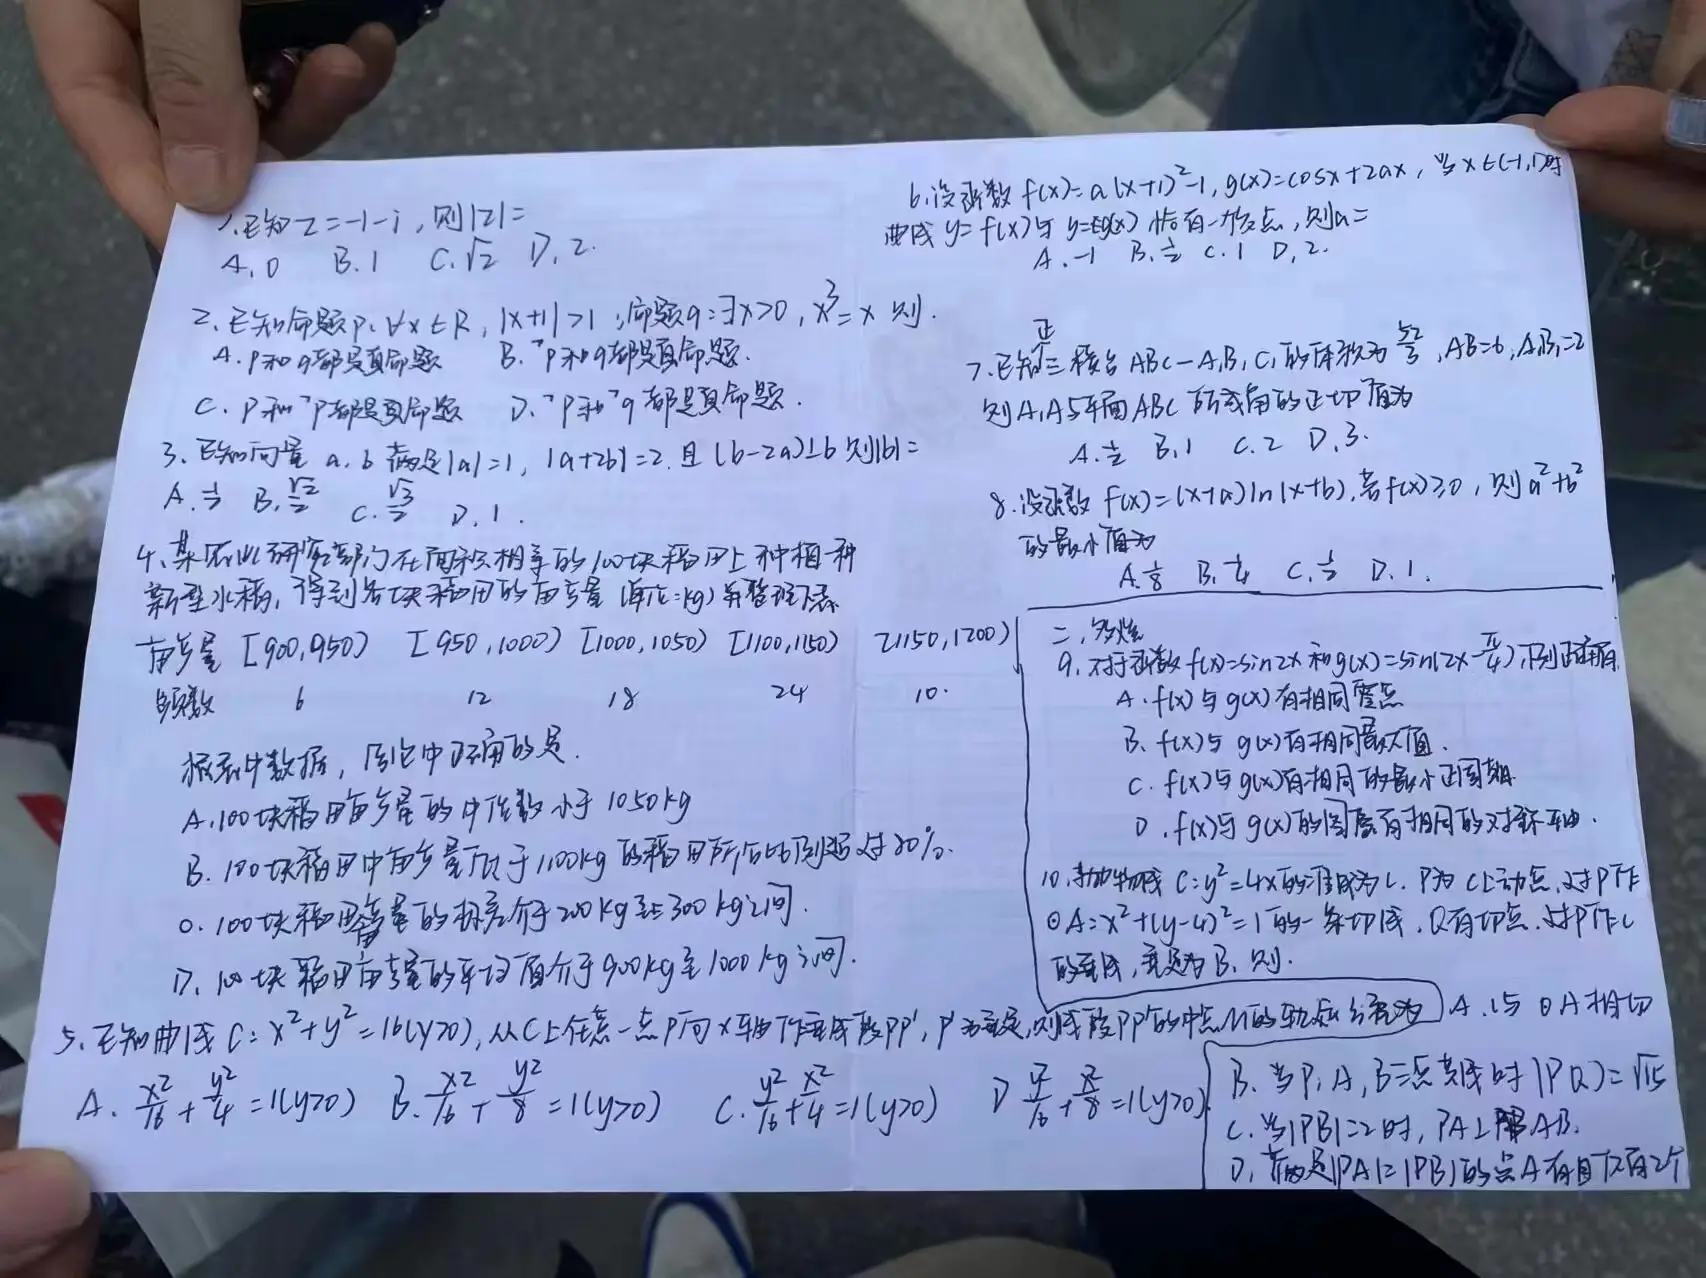 1.已知z=-1-i,则|z|=
A.0 B.1 C.√2 D.2.
2.已知命题p:∀x∈R,|x+1|>1;命题q:∃x>0,x³=x 则.
A.p和q都是真命题 B.¬p和q都是真命题.
C.p和¬p都是真命题 D.¬p和¬q都是真命题.
3.已知向量a.b满足|a|=1,|a+2b|=2.且(b-2a)⊥b则|b|=
A.1/2 B.√2/2 C.√3/2 D.1.
4.某农业研究部门在面积相等的100块稻田上种植一种
新型水稻,得到各块稻田的亩产量(单位=kg)并整理下表
亩产量 [900,950) [950,1000) [1000,1050) [1100,1150) [1150,1200)
频数 6 12 18 24 10.
据表中数据,结论中正确的是.
A.100块稻田亩产量的中位数小于1050kg
B.100块稻田中亩产量低于1100kg的稻田所占比例超过80%.
C.100块稻田亩产量的极差介于200kg至300kg之间.
D.100块稻田亩产量的平均值介于900kg至1000kg之间.
5.已知曲线C:x²+y²=16(y>0),从C上任意一点P向x轴作垂线段PP',P'为垂足,则线段PP'的中点M的轨迹方程为
A.x²/16+y²/4=1(y>0) B.x²/16+y²/8=1(y>0) C.y²/16+x²/4=1(y>0) D y²/16+x²/8=1(y>0)
6.设函数f(x)=a(x+1)²-1,g(x)=cosx+2ax,当x∈(-1,1)时
曲线y=f(x)与y=g(x)恰有一个交点,则a=
A.-1 B.1/2 C.1 D.2.
7.已知正三棱台ABC-A₁B₁C₁的体积为52/3,AB=6,A₁B₁=2
则A₁A与平面ABC所成角的正切值为
A.1/2 B.1 C.2 D.3.
8.设函数f(x)=(x+a)ln(x+b),若f(x)≥0,则a²+b²
的最小值为
A.1/8 B.1/4 C.1/2 D.1.
二,多选
9.对于函数f(x)=sin2x和g(x)=sin(2x-π/4),下列正确有
A.f(x)与g(x)有相同零点
B.f(x)与g(x)有相同最大值.
C.f(x)与g(x)有相同的最小正周期
D.f(x)与g(x)的图像有相同的对称轴.
10.抛物线C:y²=4x的准线为L.P为C上动点,对P作
⊙A:x²+(y-4)²=1的一条切线.Q有切点.对P作L
的垂线,垂足为B.则.
A.L与⊙A相切
B.当P,A,B三点共线时|PQ|=√15
C.当|PB|=2时,PA⊥AB.
D.满足|PA|=|PB|的点A有且仅有2个